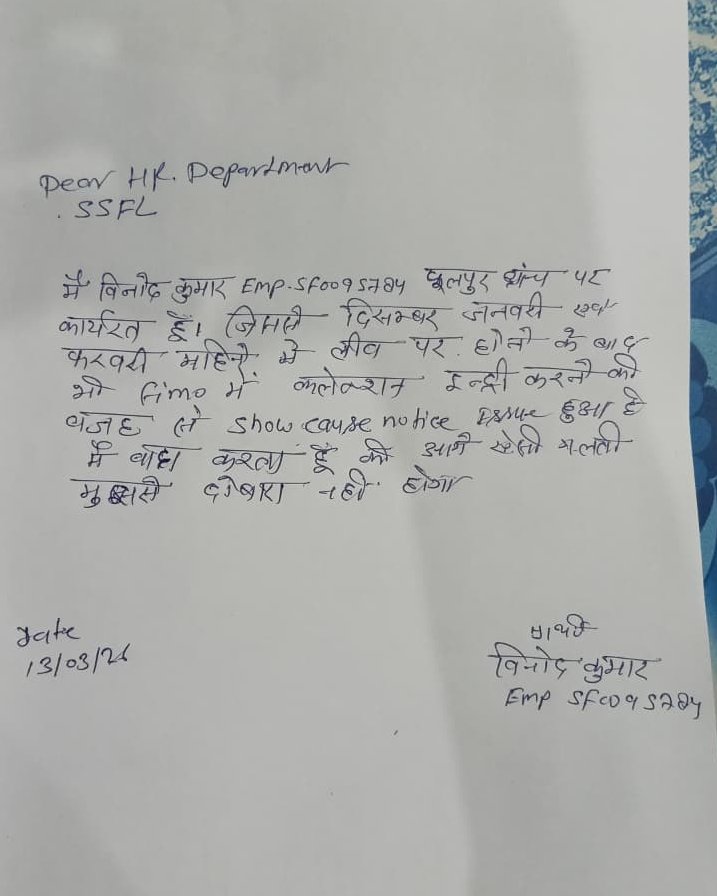 Dear HR. Department
. SSFL
मै विनोद कुमार Emp. SF0095784 पर
कार्यरत हूँ। जिसमे दिसम्बर जनवरी एवं
फरवरी महिने मे लीव पर होने के बाद
भी fimo में कलेक्शन इन्ट्री करने की
वजह से show cause notice issue हुआ है
मैं वादा करता हूँ की आगे ऐसी गलती
मुझसे दोबारा नही होगा
Date
13/03/26
प्रार्थी
विनोद कुमार
Emp SF0095784